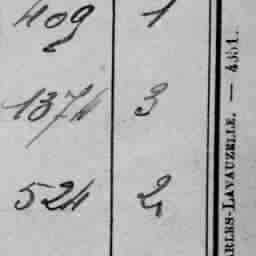 409 1
1374 3
524 2
ARLES-LAVAUZELLE. — 4351.